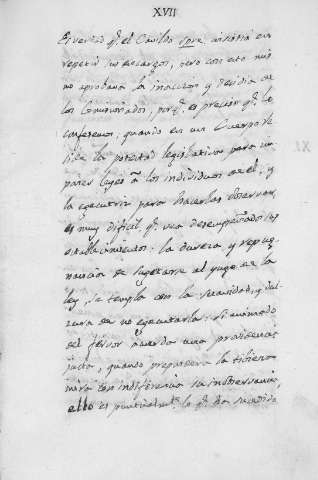 XVII
Es verdad q.e el Cavildo spre. insistia en
repetir sus encargos, pero con esto mis
no aprobava la inaccion y desidia de
los Comisionados, porq.e es preciso q.e lo
confesemos, quando en un Cuerpo re
side la potestad legislativa para im
poner leyes á los individuos de el, y
la executriz para hacerlas observar,
es muy dificil q.e vea desempeñados sus
establecimientos: la dureza y repug
nancia de sugetarse al yugo de la
ley, se templa con la suavidad, y dul
zura de no executarla: Si animado
del fervor acuerda una providencia
justa, quando prepondera la tibieza
mira con indiferencia su inobservancia,
ello es puntualm.te lo q.e ha sucedido